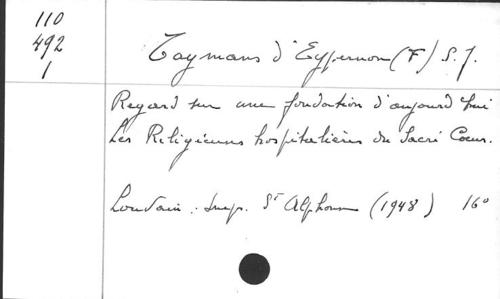 110
492
1
Taymans d'Eypernon (F) S. J.
Regard sur une fondation d'aujourd'hui
Les Religieuses hospitalières du Sacré Coeur.
Louvain : Imp. St Alphonse (1948) 16°